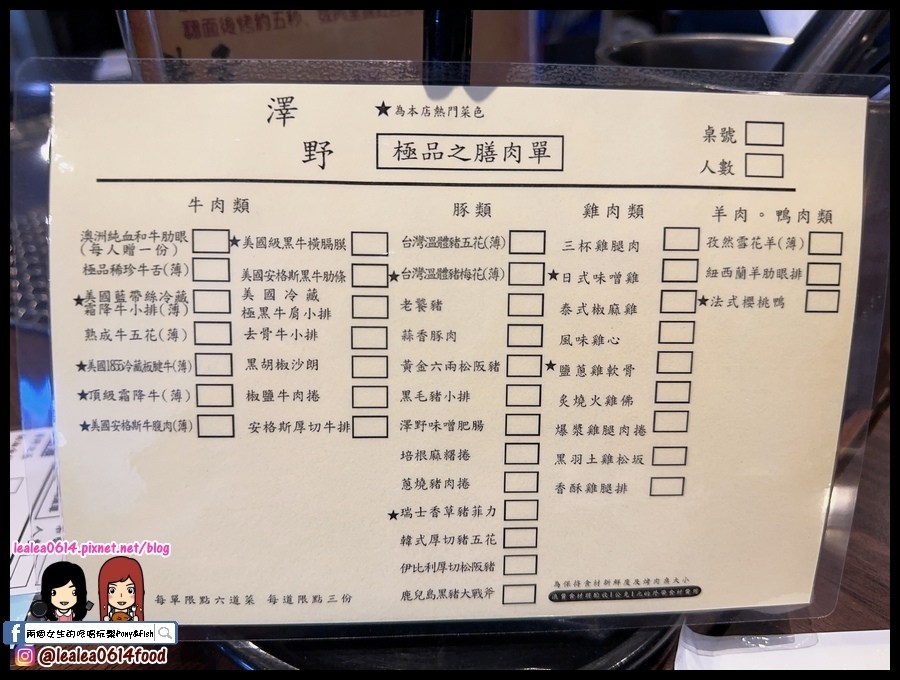 翻面後烤約五秒
澤野
★為本店熱門菜色
極品之膳肉單
桌號
人數
牛肉類
澳洲純血和牛肋眼
(每人贈一份)
極品稀珍牛舌(薄)
★美國藍帶絲冷藏
霜降牛小排(薄)
熟成牛五花(薄)
★美國1855冷藏板腱牛(薄)
★頂級霜降牛(薄)
★美國安格斯牛腹肉(薄)
★美國級黑牛橫膈膜
美國安格斯黑牛肋條
美國冷藏
極黑牛肩小排
去骨牛小排
黑胡椒沙朗
椒鹽牛肉捲
安格斯厚切牛排
豚類
台灣溫體豬五花(薄)
★台灣溫體豬梅花(薄)
老饕豬
蒜香豚肉
黃金六兩松阪豬
黑毛豬小排
澤野味噌肥腸
培根麻糬捲
蔥燒豬肉捲
★瑞士香草豬菲力
韓式厚切豬五花
伊比利厚切松阪豬
鹿兒島黑豬大戰斧
雞肉類
三杯雞腿肉
★日式味噌雞
泰式椒麻雞
風味雞心
★鹽蔥雞軟骨
炙燒火雞佛
爆漿雞腿肉捲
黑羽土雞松坂
香酥雞腿排
羊肉。鴨肉類
孜然雪花羊(薄)
紐西蘭羊肋眼排
★法式櫻桃鴨
每單限點六道菜 每道限點三份
為保持食材新鮮度及烤肉痕大小
lealea0614.pixnet.net/blog
兩個女生的吃喝玩樂Pony&Fish
@lealea0614food